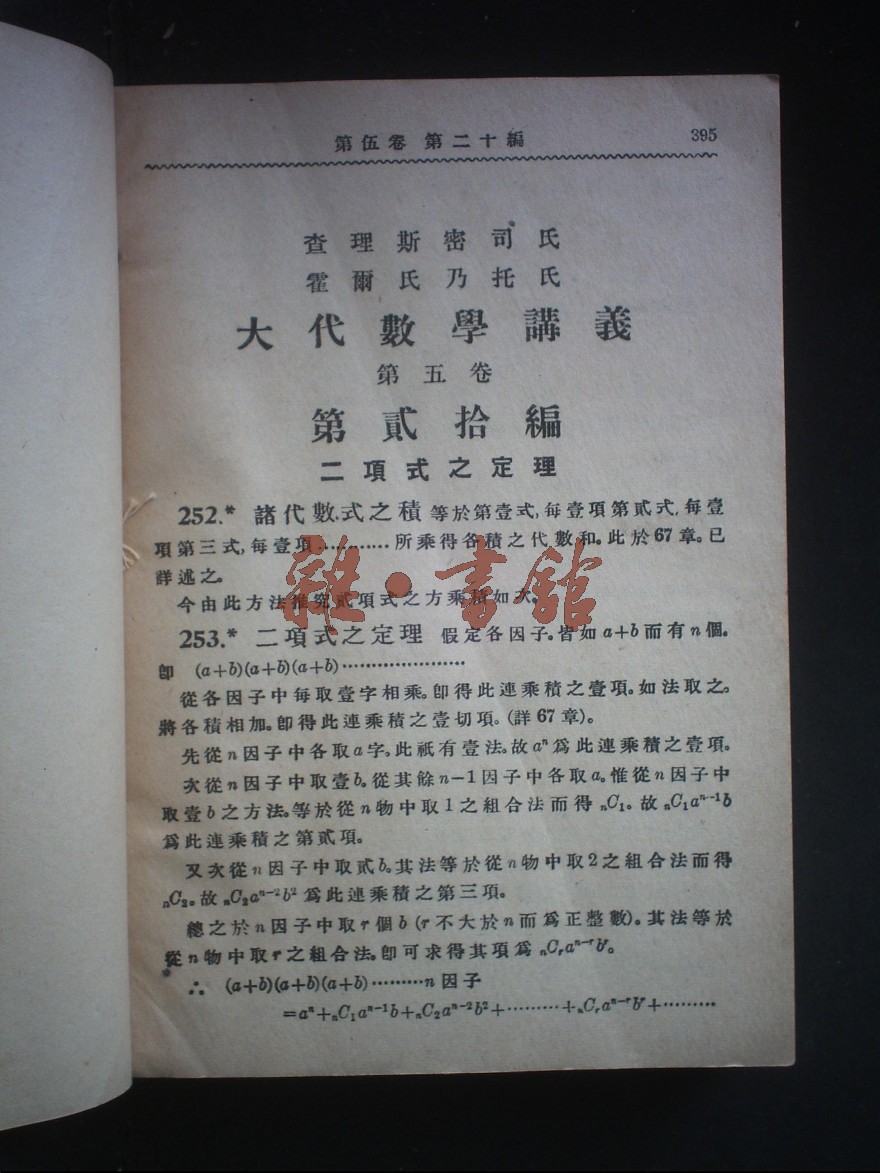 第伍卷 第二十編 395
查理斯密司氏
霍爾氏乃托氏
大代數學講義
第五卷
第貳拾編
二項式之定理
252.* 諸代數式之積 等於第壹式,每壹項第貳式,每壹
項第三式,每壹項…………所乘得各積之代數和。此於67章。已
詳述之。
今由此方法推究貳項式之方乘積如次。
253.* 二項式之定理 假定各因子。皆如a+b而有n個。
卽 (a+b)(a+b)(a+b)…………………
從各因子中每取壹字相乘。卽得此連乘積之壹項。如法取之。
將各積相加。卽得此連乘積之壹切項。(詳67章)。
先從n因子中各取a字。此祇有壹法。故aⁿ爲此連乘積之壹項。
次從n因子中取壹b。從其餘n-1因子中各取a。惟從n因子中
取壹b之方法。等於從n物中取1之組合法而得 ₙC₁。故ₙC₁aⁿ⁻¹b
爲此連乘積之第貳項。
又次從n因子中取貳b。其法等於從n物中取2之組合法而得
ₙC₂。故ₙC₂aⁿ⁻²b²爲此連乘積之第三項。
總之於n因子中取r個b(r不大於n而爲正整數)。其法等於
從n物中取r之組合法。卽可求得其項爲ₙCᵣaⁿ⁻ʳbʳ。
∴ (a+b)(a+b)(a+b)………n因子
=aⁿ+ₙC₁aⁿ⁻¹b+ₙC₂aⁿ⁻²b²+………+ₙCᵣaⁿ⁻ʳbʳ+………
雜·書館